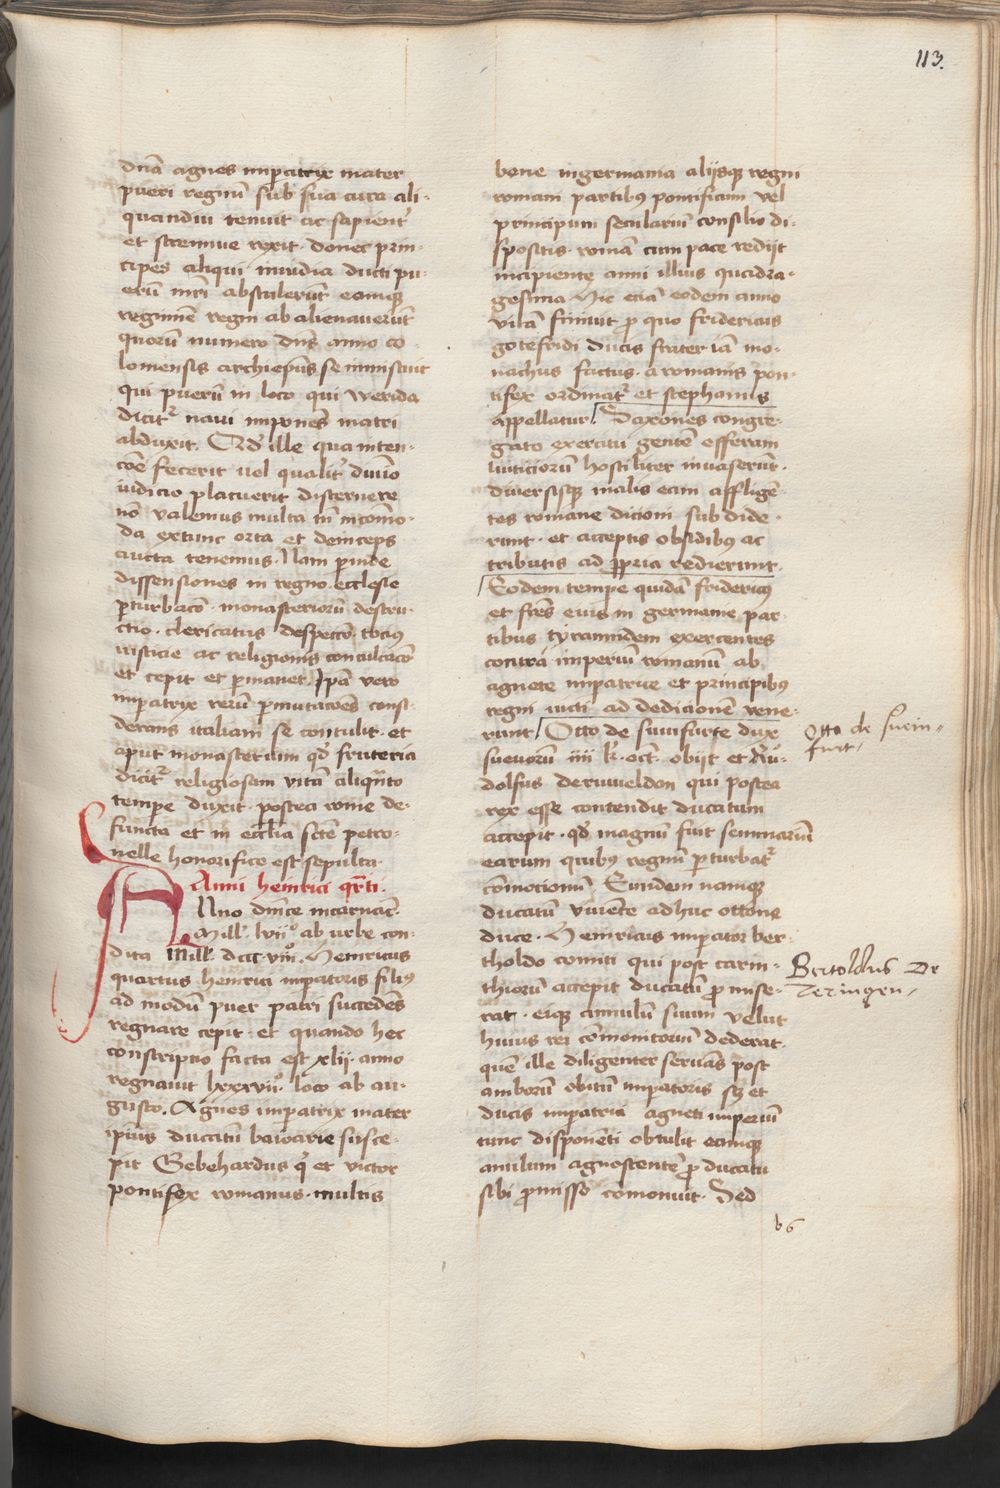 113.
dnā agnes imperatrix mater
pueri regnū sub sua cura ali-
quandiu tenuit ac sapient̉
et strennue rexit · donec prin-
cipes aliqui inuidia ducti pu-
erū mr̄i abstulerūt eamq̨
regimīe regni ab alienauerūt
quorū numero dn̄s anno co
loniensis archiepūs se inmiscuit
qui puerū in loco qui werida
dicit᷑ naui imponēs matri
abduxit. Qd̄ ille qua inten-
cōe fecerit uel qualit̉ diuīo
iudicio placuerit discernere
nō valemus multa tn̄ incōmo-
da extunc orta et deinceps
aucta tenemus. Nam perinde
dissensiones in regno · ecclesie
ꝑturbacō · monasteriorū destru-
ctio · clericatus despectō · tocius
iusticie ac religionis conculcacō
et cepit et ꝑmanet. Ip̄a vero
imperatrix rerū ꝑmutacōes consi-
derans italiam se contulit · et
aput monasterium qd̄ fruteria
dicit᷑ religiosam vitā aliqn̄to
tempe duxit · postea rome de-
functa et in ecclīa scīe petro-
nelle honorifice est sepulta ·
Anni heinrici qr̄ti.
Anno dn̄ice incarnac̄.
Mill. lviiº ab urbe con-
dita Mill. dccc · viiiº. Heinricus
quartus heinrici imperatoris filiꝰ
ad modū puer patri succedēs
regnare cepit · et quando hec
conscriptio facta est xlii · anno
regnauit lxxxviiº. loco ab au-
gusto. Agnes imperatrix mater
ipius ducatū bawarie susce-
pit Gebehardus q̄ et victor
pontifex romanus · multis
bene in germania alijsq̨ regni
romani partibꝰ pontificum vel
principum seculariū consilio di-
spositis · romā cum pace redijt
incipiente anni illius quadra-
gesima Hic eciā eodem anno
vitā finiuit ꝓ quo fridericus
gotefridi ducis frater iā mo-
nachus factus · a romanis pon-
tifex ordinat᷑ et stephanus
appellatur Saxones congre-
gato exercitu gentē efferam
luiticiorū hostiliter inuaserūt ·
diuersisq̨ malis eam affligē-
tes romane dicioni subdide-
runt · et acceptis obsidibꝰ ac
tributis ad ꝓpria redierunt.
Eodem tempe quidā fridericꝰ
et frēs eius in germanie par-
tibus tyrannidem exercentes
contrā imperiū romanū ab
agnete imperatrice et principibꝰ
regni uicti ad dedicionē vene-
runt Otto de suinfurte dux
sueuorū iiii kl̄ · oct. obijt et Ru-
dolfus deruueldon qui postea
rex esse contendit ducatum
accepit · qd̄ magnū fuit seminariū
earum quibus regnū ꝑturbat᷑
cōmotionū. Eundem namq̨
ducatū viuēte adhuc ottone
duce · Heinricus imperator ber-
tholdo comiti qui post carin-
thiorū accepit ducatū ꝓmise-
rat · eiq̨ annulū suum velut
huius rei cōmonitoriū dederat.
quē ille diligenter seruās post
amborū obitū imperatoris sꝫ et
ducis imperatrici agneti imperiū
tunc disponēti obtulit eamq̨
anulum agnoscentē ꝓ ducatu
sibi ꝓmisso comonuit. Sed
Otto de suein-
furt
Bertoldus De
Zeringen
b6